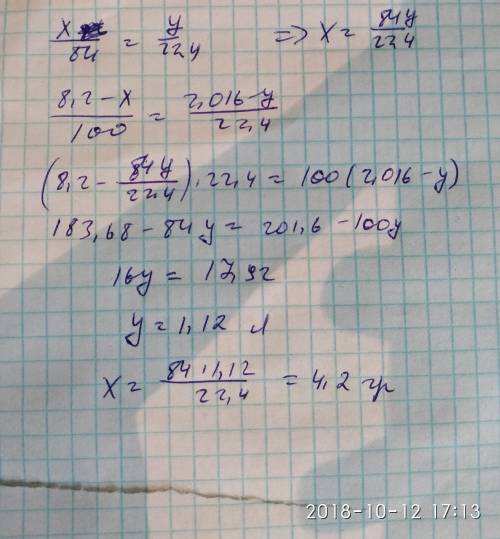 x/84 = y/22,4 => x = 84y/22,4
8,2-x/100 = 2,016-y/22,4
(8,2 - 84y/22,4).22,4 = 100(2,016-y)
183,68 - 84y = 201,6 - 100y
16y = 17,92
y = 1,12 л
x = 84.1,12/22,4 = 4,2 гр
2018-10-12 17:13